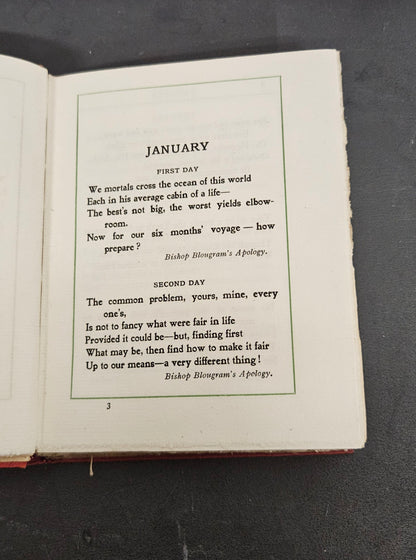 JANUARY
FIRST DAY
We mortals cross the ocean of this world
Each in his average cabin of a life—
The best's not big, the worst yields elbow-
room.
Now for our six months' voyage — how
prepare ?
Bishop Blougram's Apology.
SECOND DAY
The common problem, yours, mine, every
one's,
Is not to fancy what were fair in life
Provided it could be—but, finding first
What may be, then find how to make it fair
Up to our means—a very different thing !
Bishop Blougram's Apology.
3